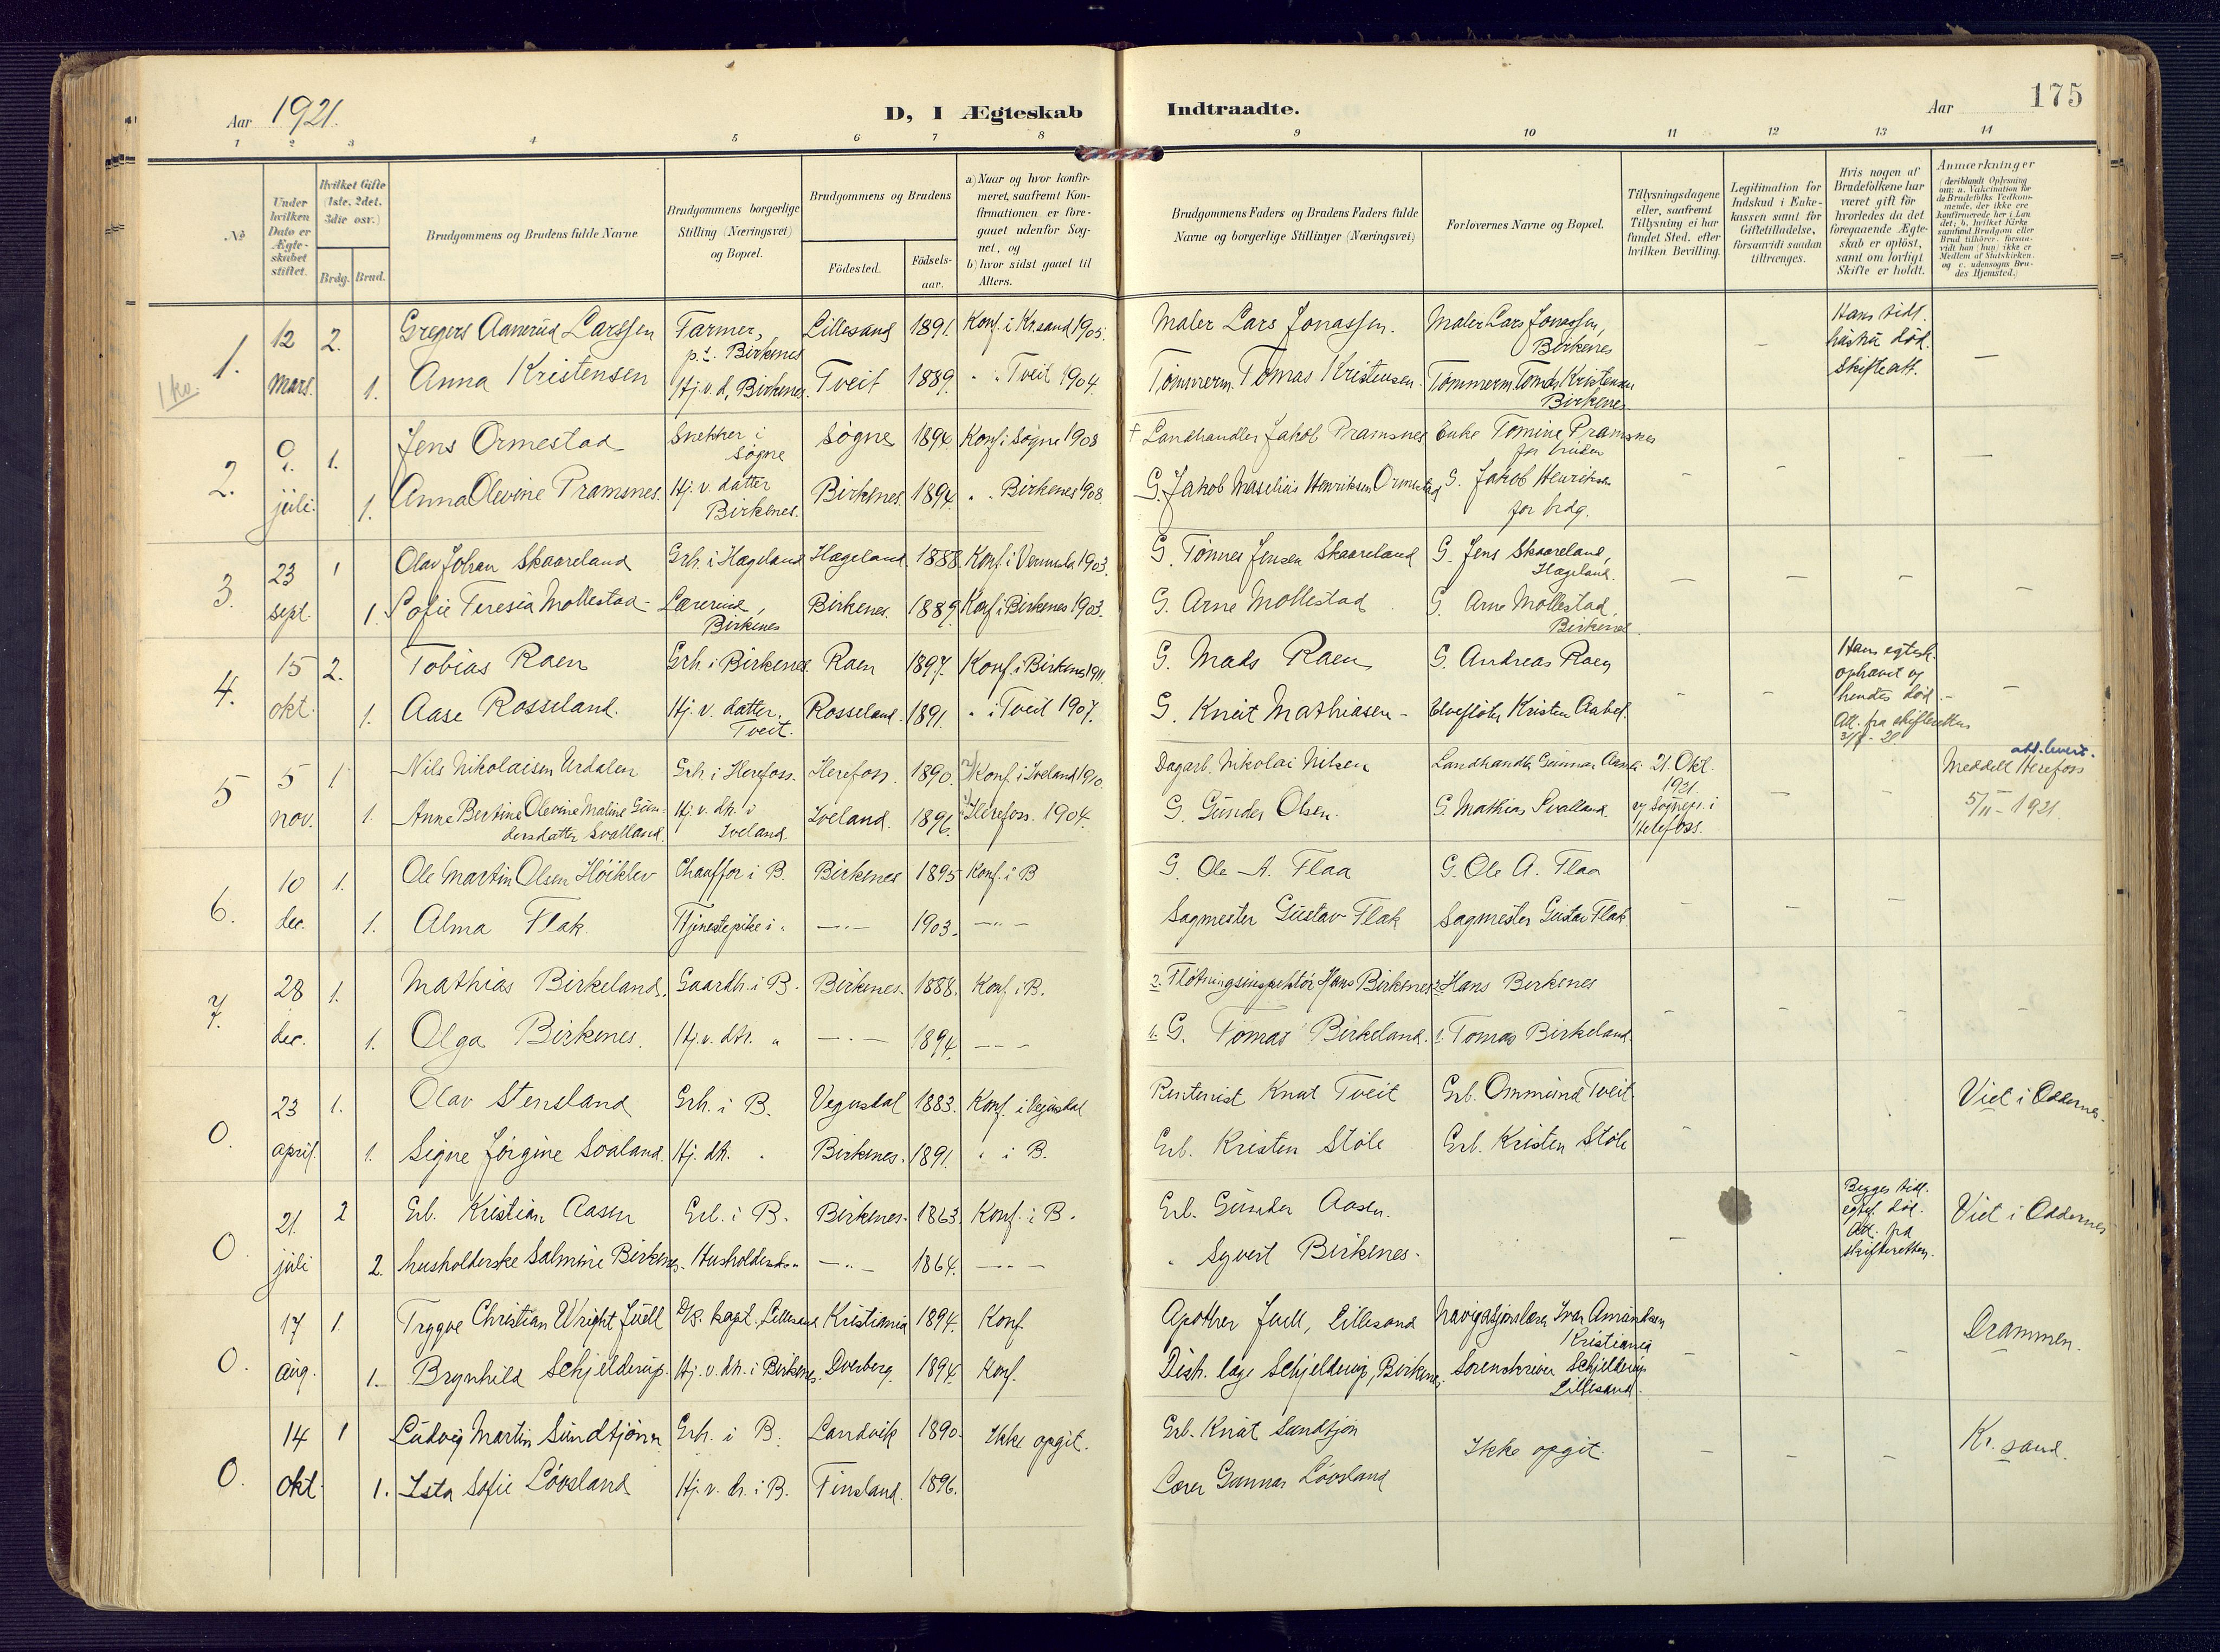 Aar 1921.
D, I Ægteskab Indtraadte.
Aar 175
1 2 3 4 5 6 7 8 9 10 11 12 13 14
№
Under hvilken Dato er Ægteskabet stiftet.
Hvilket Gifte (1ste, 2det, 3die osv.)
Brdg. Brud.
Brudgommens og Brudens fulde Navne
Brudgommens borgerlige Stilling (Næringsvei) og Bopæl.
Brudgommens og Brudens
Födested. Födsels-aar.
a) Naar og hvor konfirmeret, saafremt Konfirmationen er foregaaet udenfor Sognet, og
b) hvor sidst gaaet til Alters.
Brudgommens Faders og Brudens Faders fulde Navne og borgerlige Stillinger (Næringsvei)
Forlovernes Navne og Bopæl.
Tillysningsdagene eller, saafremt Tillysning ei har fundet Sted, efter hvilken Bevilling.
Legitimation for Indskud i Enkekassen samt for Giftetilladelse, forsaavidt saadan tiltrænges.
Hvis nogen af Brudefolkene har været gift för hvorledes da det foregaaende Ægteskab er oplöst, samt om lovligt Skifte er holdt.
Anmærkninger (deriblandt Oplysning om: a. Vakcination for de Brudefolks Vedkommende, der ikke ere konfirmerede her i Landet; b. hvilket Kirkesamfund Brudgom eller Brud tilhörer, forsaavidt han (hun) ikke er Medlem af Statskirken, og c. udensogns Brudes Hjemsted.)
1. 12 2. Gregers Aanerud Larssen Farmer, p.t. Birkenes Lillesand 1891. Konf. i Kr.sand 1905. Maler Lars Jonassen. Maler Lars Jonassen, Birkenes – Hans tidl. hustru død. Skifteatt. –
1 ko. mars. 1. Anna Kristensen Hj. v. d, Birkenes. Tveit 1889. " " Tveit 1904. Tømmerm. Tomas Kristensen. Tømmerm. Tomas Kristensen Birkenes
2. 9. 1. Jens Ormestad Snekker i Søgne Søgne 1894. Konf. i Søgne 1908 † Landhandler Jakob Pramsnes Enke Tomine Pramsnes for bruden
juli. 1. Anna Olevine Pramsnes. Hj. v. datter Birkenes. Birkenes. 1894. " . Birkenes 1908. G. Jakob Maselius Henriksen Ormestad G. Jakob Henriksen for brdg. – – – –
3. 23 1 Olav Johan Skaareland Grb. i Hægeland Hægeland 1888. Konf. i Vennesla 1903. G. Tønnes Jensen Skaareland G. Jens Skaareland, Hægeland.
sept. 1. Sofie Teresia Mollestad Lærerine, Birkenes Birkenes. 1889. Konf. i Birkenes 1903. G. Arne Mollestad G. Arne Mollestad, Birkenes. – – – –
4. 15 2. Tobias Raen Grb. i Birkenes. Raen 1897. Konf. i Birkenes 1911. G. Mads Raen G. Andreas Raen Hans egtesk. ophævet og hendes død. –
okt. 1. Aase Rosseland. Hj. v. datter. Tveit. Rosseland. 1891. " i Tveit 1907. G. Knut Mathiasen – Elvefløter Kristen Aabel. – – Att. fra skifteretten –
5 5 1 Nils Nikolaisen Urdalen Grb. i Herefoss. Herefoss. 1890. Konf. i Iveland 1910. Dagarb. Nikolai Nilsen Landhandl. Gunnar 21. Okt. 1921. Meddelt Herefoss
nov. 1. Anne Bertine Olevine Maline Gundersdatter Svalland. Hj. v. dtr. i Iveland. Iveland. 1896. Herefoss. 1904. G. Gunder Olsen. G. Mathias Svalland. Herefoss. – – 5/11 – 1921.
6. 10 1. Ole Martin Olsen Høiklev Chauffør i B. Birkenes 1895 Konf. i B G. Ole A. Flaa G. Ole A. Flaa
dec. 1. Alma Flak. Tjenestepike i " –"– 1903. –"– Sagmester Gustav Flak Sagmester Gustav Flak. – – –
7. 28 1. Mathias Birkeland. Gaardb. i B. Birkenes. 1888. Konf. i B. 2. Fløtningsinspektør Hans Birkenes 2. Hans Birkenes
dec. 1. Olga Birkenes. Hj. v. dtr. " –"– 1894. –"– 1. G. Tomas Birkeland. 1. Tomas Birkeland. – – – –
0. 23 1. Olav Stensland Grb. i B. Vegusdal 1883. Konf. i Vegusdal Rentenist Knut Tveit Grb. Ommund Tveit Viet i Oddernes.
april. 1. Signe Jørgine Svaland. Hj. dtr. " Birkenes. 1891. " i B. Grb. Kristen Støle Grb. Kristen Støle –
0. 21. 2 Grb. Kristian Aasen Grb. i B. Birkenes. 1863. Konf. i B. Grb. Gunder Aasen. Begges tidl. egtef. død. Att. fra skifteretten. Viet i Oddernes
juli 2. husholderske Salmine Birkenes. Husholderske " –"– 1864. –"– " Syvert Birkenes. –
0. 17 1. Trygve Christian Wright Juell kapt. Lillesand Kristiania 1894. Konf Apother Juell, Lillesand Navigasjonslærer Ivar Amundsen Kristiania Drammen.
aug. 1. Brynhild Schjelderup. Hj. v. dtr. i Birkenes. Dverberg. 1894. Konf. Distr. læge Schjelderup, Birkenes. Sorenskriver Schjelderup Lillesand. – – –
0. 14 1 Ludvig Martin Sundtjønn Grb. i B. Landvik 1890. Ikke opgit. Grb. Knut Sundtjøn Ikke opgit. – – – Kr. sand.
okt. 1. Ista Sofie Løvsland Hj. v. dr. i B. Finsland. 1896. Lærer Gunnar Løvsland